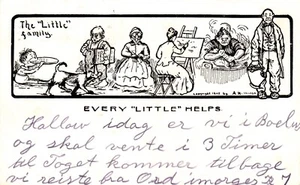 The "Little" family.
EVERY "LITTLE" HELPS
Hallow idag er vi i
og skal vente i 3 Timer
til Toget kommer tilbage
vi reiste fra Ord imorges K 7